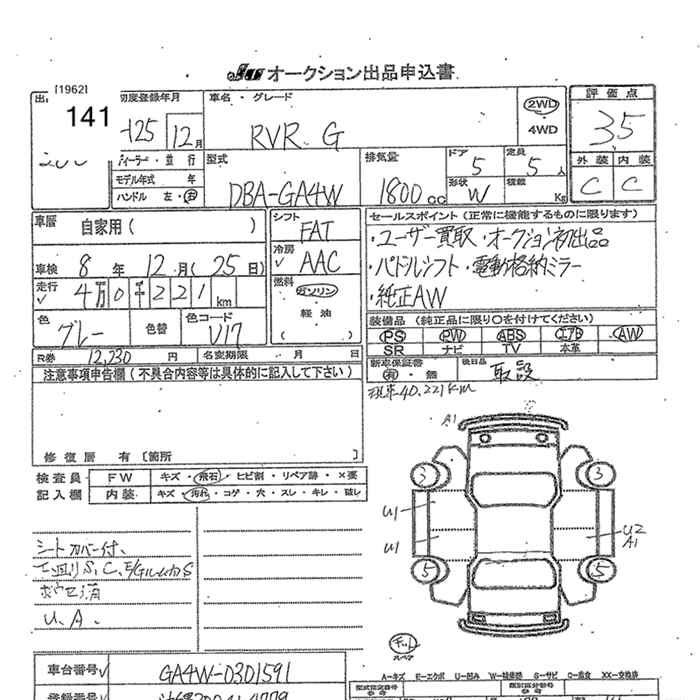 JU オークション出品申込書
[1962]
141
初度登録年月
車名・グレード
2WD
4WD
評価点
H25 12月
RVR G
3.5
ディーラー・並行
型式
排気量
ドア
定員
外装 内装
モデル年式 年
ハンドル 左・右
DBA-GA4W
1800 cc
5
5人
形状 W
積載 Kg
C C
車歴 自家用( )
シフト FAT
セールスポイント(正常に機能するものに限ります)
車検 8年 12月(25日)
冷房 AAC
・ユーザー買取・オークション初出品
・パドルシフト・電動格納ミラー
走行 4万0千221km
燃料 ガソリン
・純正AW
軽油
( )
色 グレー
色替
色コード U17
装備品(純正品に限り〇を付けてください)
PS PW ABS エアB AW
SR ナビ TV 本革
R券 12,230円
名変期限 月 日
新車保証書
有・無
後日品
取説
注意事項申告欄(不具合内容等は具体的に記入して下さい)
現車40,221km
修復歴 有〔箇所 〕
検査員
記入欄
FW キズ・飛石・ヒビ割・リペア跡・×要
内装 キズ・汚れ・コゲ・穴・スレ・キレ・破レ
A1
3 3
U1
U1
U2
A1
5 5
シートカバー付、
U.A.
スペア
車台番号 GA4W-0301591
登録番号
A=キズ E=エクボ U=凹み S=サビ C=腐食 XX=交換済